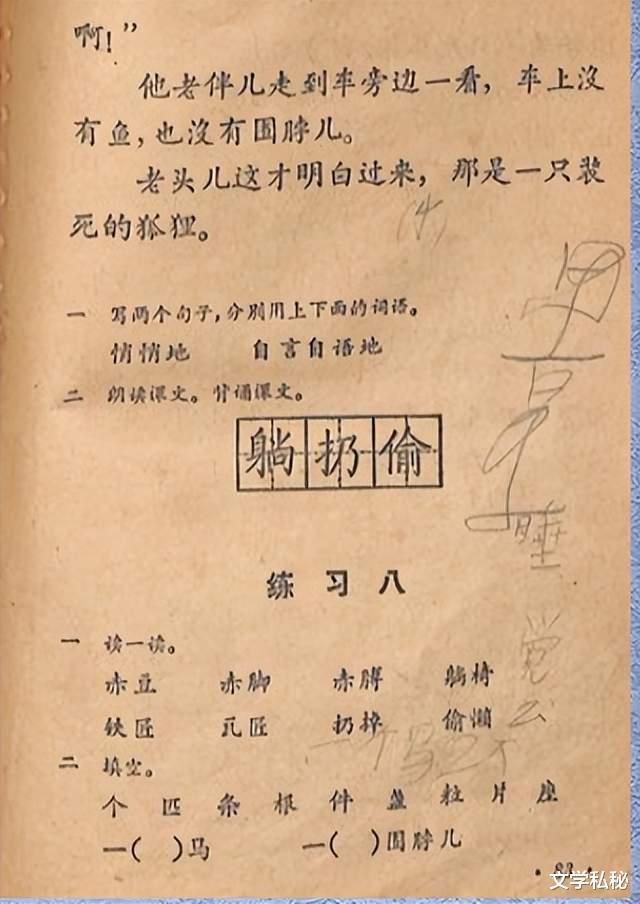 啊！”
他老伴儿走到车旁边一看，车上沒
有鱼，也沒有围脖儿。
老头儿这才明白过来，那是一只装
死的狐狸。
一 写两个句子，分别用上下面的词语。
悄悄地 自言自语地
二 朗读课文。背诵课文。
躺扔偷
练习八
一 读一读。
赤豆 赤脚 赤膊 躺椅
铁匠 瓦匠 扔掉 偷懒
二 填空。
个 匹 条 根 件 盏 粒 片 座
一( )马 一( )围脖儿
睡
觉
文学私秘